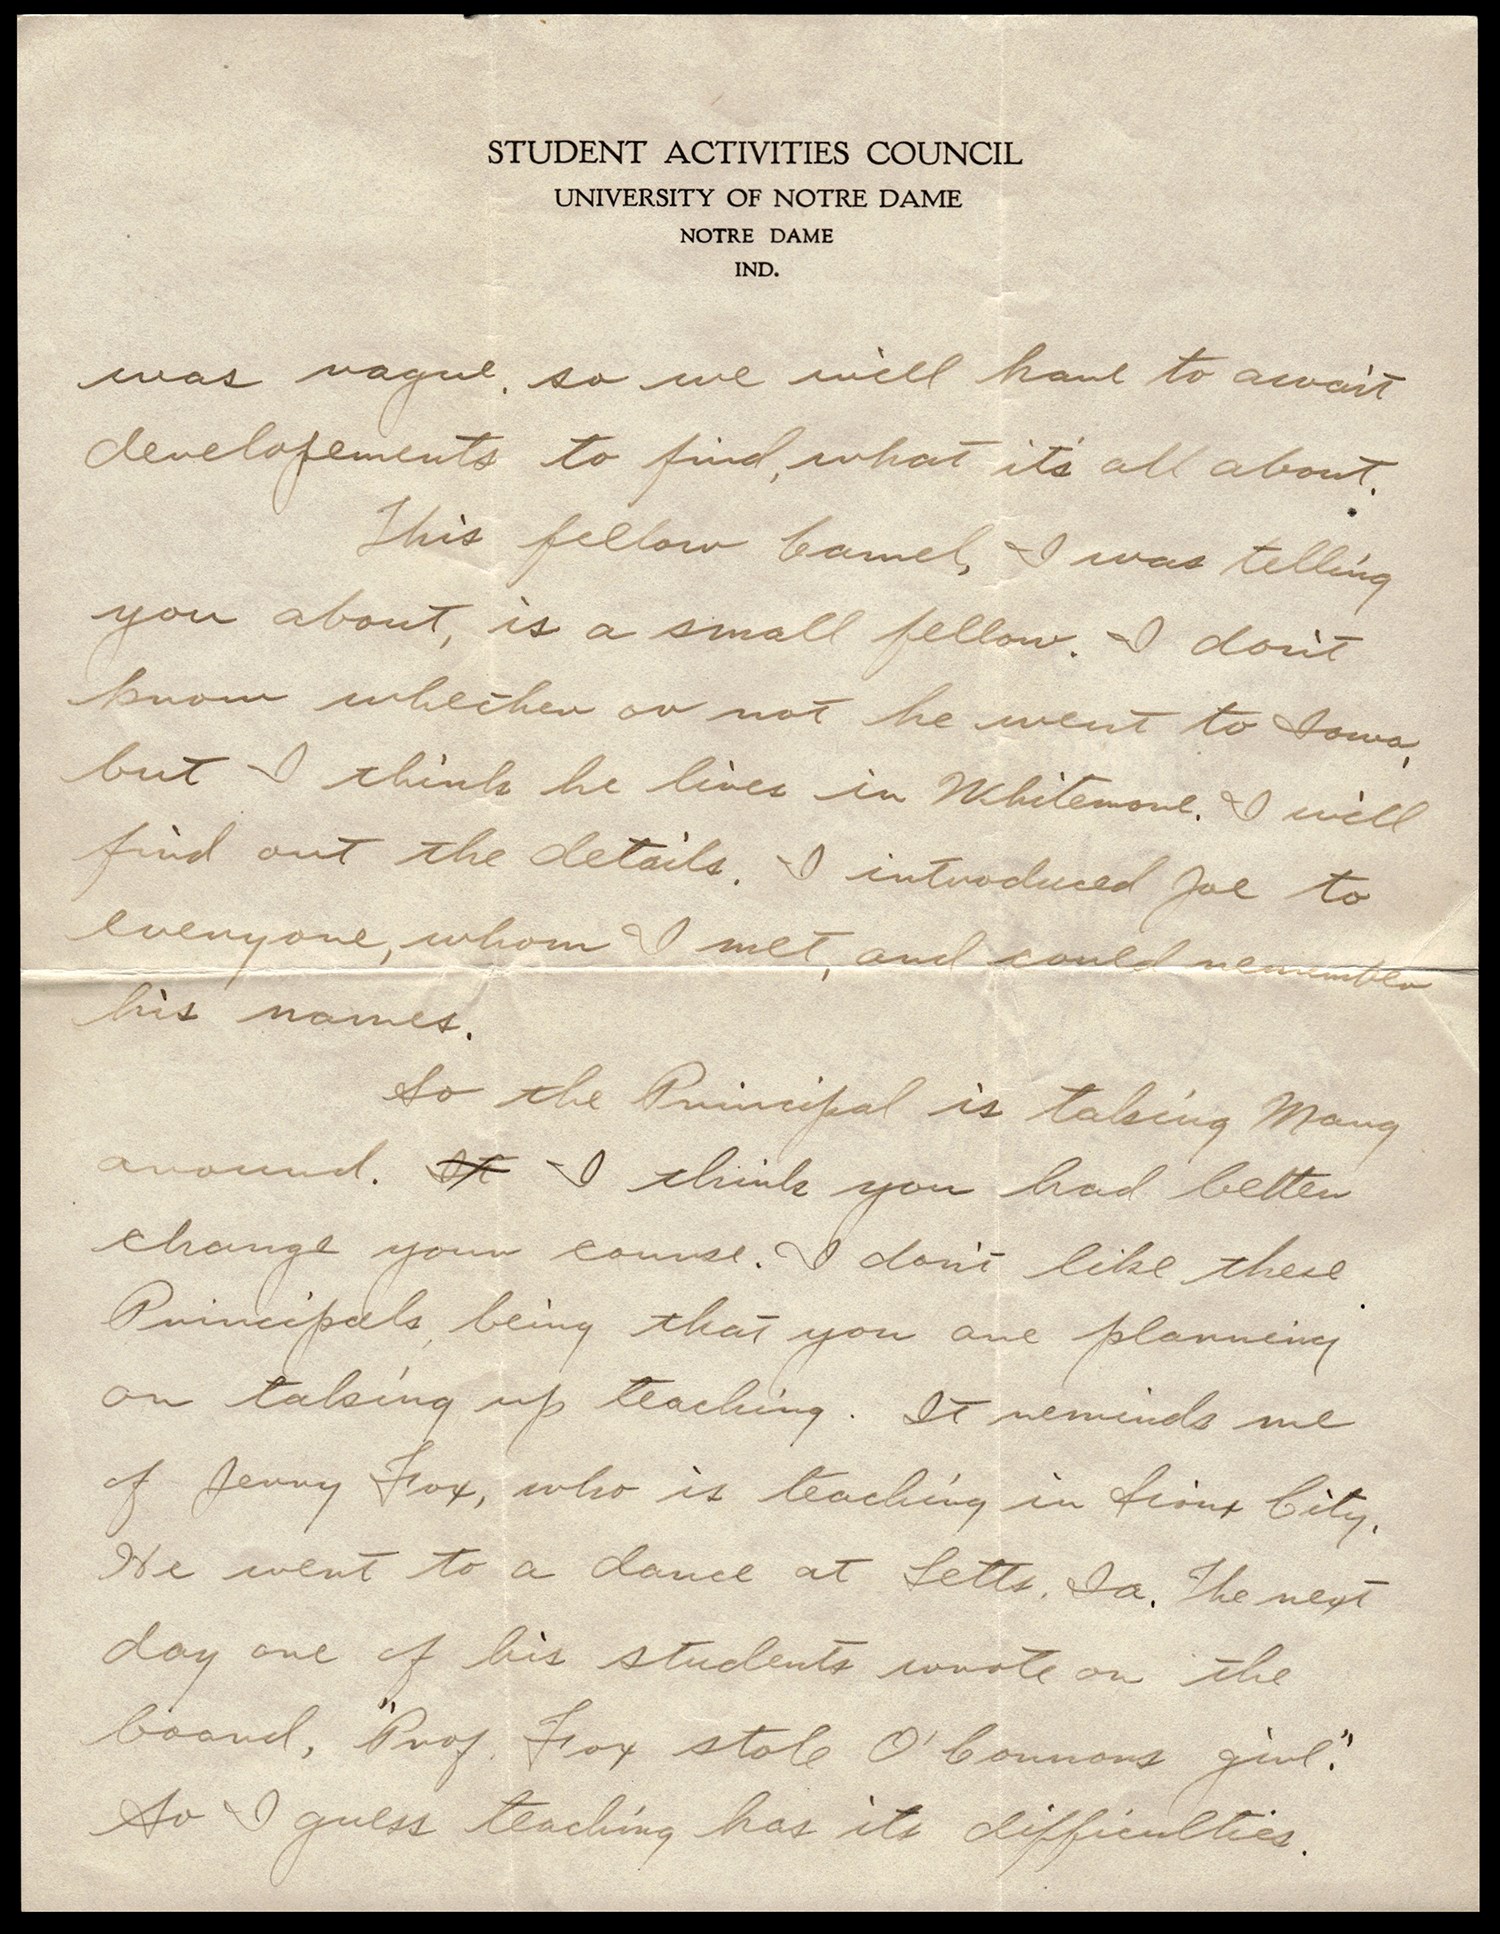 STUDENT ACTIVITIES COUNCIL
UNIVERSITY OF NOTRE DAME
NOTRE DAME
IND.
was vague. so we will have to await
developements to find, what it's all about.
This fellow Camel, I was telling
you about, is a small fellow. I don't
know whether or not he went to Iowa,
but I think he lives in Whitemore. I will
find out the details. I introduced Joe to
everyone, whom I met, and could remember
his names.
So the Principal is taking Mary
around. It I think you had better
change your course. I don't like these
Principals, being that you are planning
on taking up teaching. It reminds me
of Jerry Fox, who is teaching in Sioux City.
He went to a dance at Letts, Ia. The next
day one of his students wrote on the
board, "Prof. Fox stole O'Connors girl."
So I guess teaching has its difficulties.